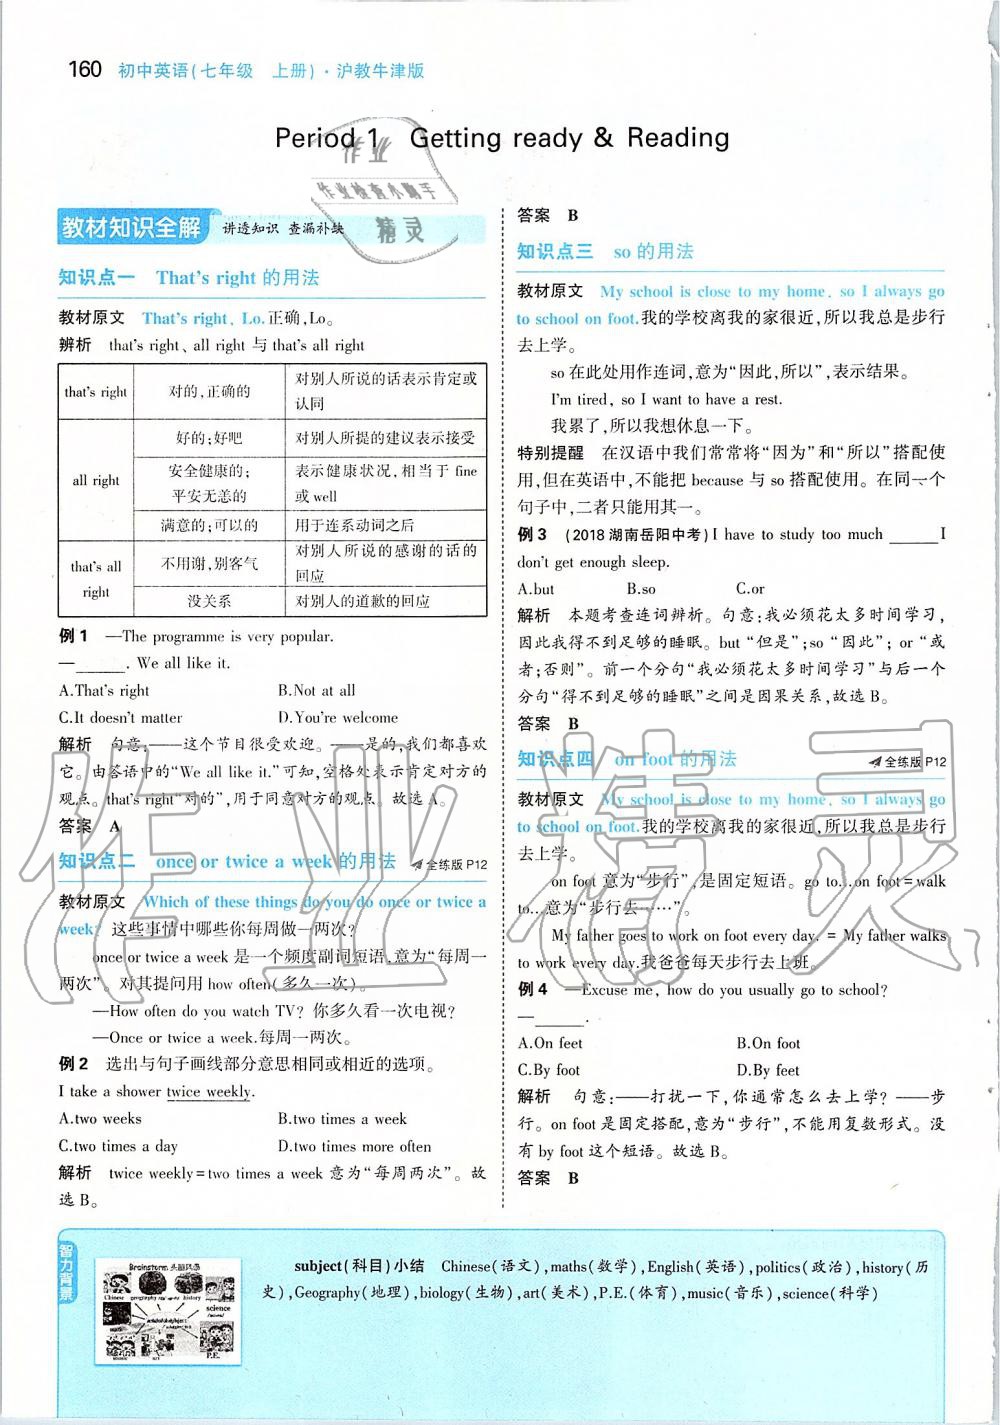 160 初中英语(七年级 上册)·沪教牛津版
Period 1 Getting ready & Reading
作业检查小助手
精灵
教材知识全解 讲透知识 查漏补缺
知识点一 That's right 的用法
教材原文 That's right, Lo.正确,Lo。
辨析 that's right、all right 与 that's all right
that's right 对的,正确的 对别人所说的话表示肯定或认同
all right 好的;好吧 对别人所提的建议表示接受
安全健康的;平安无恙的 表示健康状况,相当于 fine 或 well
满意的;可以的 用于连系动词之后
that's all right 不用谢,别客气 对别人所说的感谢的话的回应
没关系 对别人的道歉的回应
例1 —The programme is very popular.
—______. We all like it.
A.That's right B.Not at all
C.It doesn't matter D.You're welcome
解析 句意:——这个节目很受欢迎。——是的,我们都喜欢
它。由答语中的“We all like it.”可知,空格处表示肯定对方的
观点。that's right“对的”,用于同意对方的观点。故选A。
答案 A
知识点二 once or twice a week 的用法 全练版 P12
教材原文 Which of these things do you do once or twice a
week? 这些事情中哪些你每周做一两次?
once or twice a week 是一个频度副词短语,意为“每周一
两次”。对其提问用 how often(多久一次)。
—How often do you watch TV? 你多久看一次电视?
—Once or twice a week.每周一两次。
例2 选出与句子画线部分意思相同或相近的选项。
I take a shower twice weekly.
A.two weeks B.two times a week
C.two times a day D.two times more often
解析 twice weekly=two times a week 意为“每周两次”。故
选B。
答案 B
知识点三 so 的用法
教材原文 My school is close to my home, so I always go
to school on foot.我的学校离我的家很近,所以我总是步行
去上学。
so在此处用作连词,意为“因此,所以”,表示结果。
I'm tired, so I want to have a rest.
我累了,所以我想休息一下。
特别提醒 在汉语中我们常常将“因为”和“所以”搭配使
用,但在英语中,不能把 because 与 so 搭配使用。在同一个
句子中,二者只能用其一。
例3 (2018湖南岳阳中考)I have to study too much ______ I
don't get enough sleep.
A.but B.so C.or
解析 本题考查连词辨析。句意:我必须花太多时间学习,
因此我得不到足够的睡眠。but “但是”;so “因此”; or “或
者;否则”。前一个分句“我必须花太多时间学习”与后一个
分句“得不到足够的睡眠”之间是因果关系,故选B。
答案 B
知识点四 on foot 的用法 全练版 P12
教材原文 My school is close to my home, so I always go
to school on foot.我的学校离我的家很近,所以我总是步行
去上学。
on foot 意为“步行”,是固定短语。go to...on foot=walk
to...意为“步行去……”。
My father goes to work on foot every day. = My father walks
to work every day.我爸爸每天步行去上班。
例4 —Excuse me, how do you usually go to school?
—______.
A.On feet B.On foot
C.By foot D.By feet
解析 句意:——打扰一下,你通常怎么去上学? ——步
行。on foot是固定搭配,意为“步行”,不能用复数形式。没
有by foot这个短语。故选B。
答案 B
作业精灵
智力背景
Brainstorm 头脑风暴
Chinese geography history
science
P.E.
subject(科目)小结 Chinese(语文),maths(数学),English(英语),politics(政治),history(历
史),Geography(地理),biology(生物),art(美术),P.E.(体育),music(音乐),science(科学)